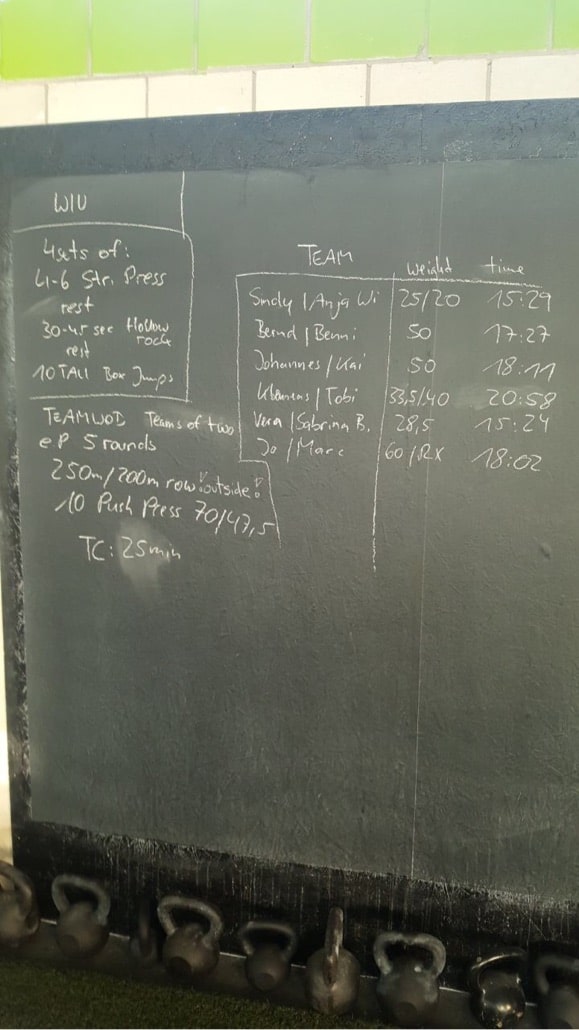 WIU
4sets of:
4-6 Str. Press
rest
30-45 sec Hollow
rock
rest
10 TALL Box Jumps
TEAMWOD Teams of two
eP 5 rounds
250m/200m row !outside!
10 Push Press 70/47,5
TC: 25min
TEAM weight time
Sindy / Anja Wi 25/20 15:29
Bernd / Benni 50 17:27
Johannes / Kai 50 18:11
Klemens / Tobi 33,5/40 20:58
Vera / Sabrina B. 28,5 15:24
Jo / Marc 60/RX 18:02